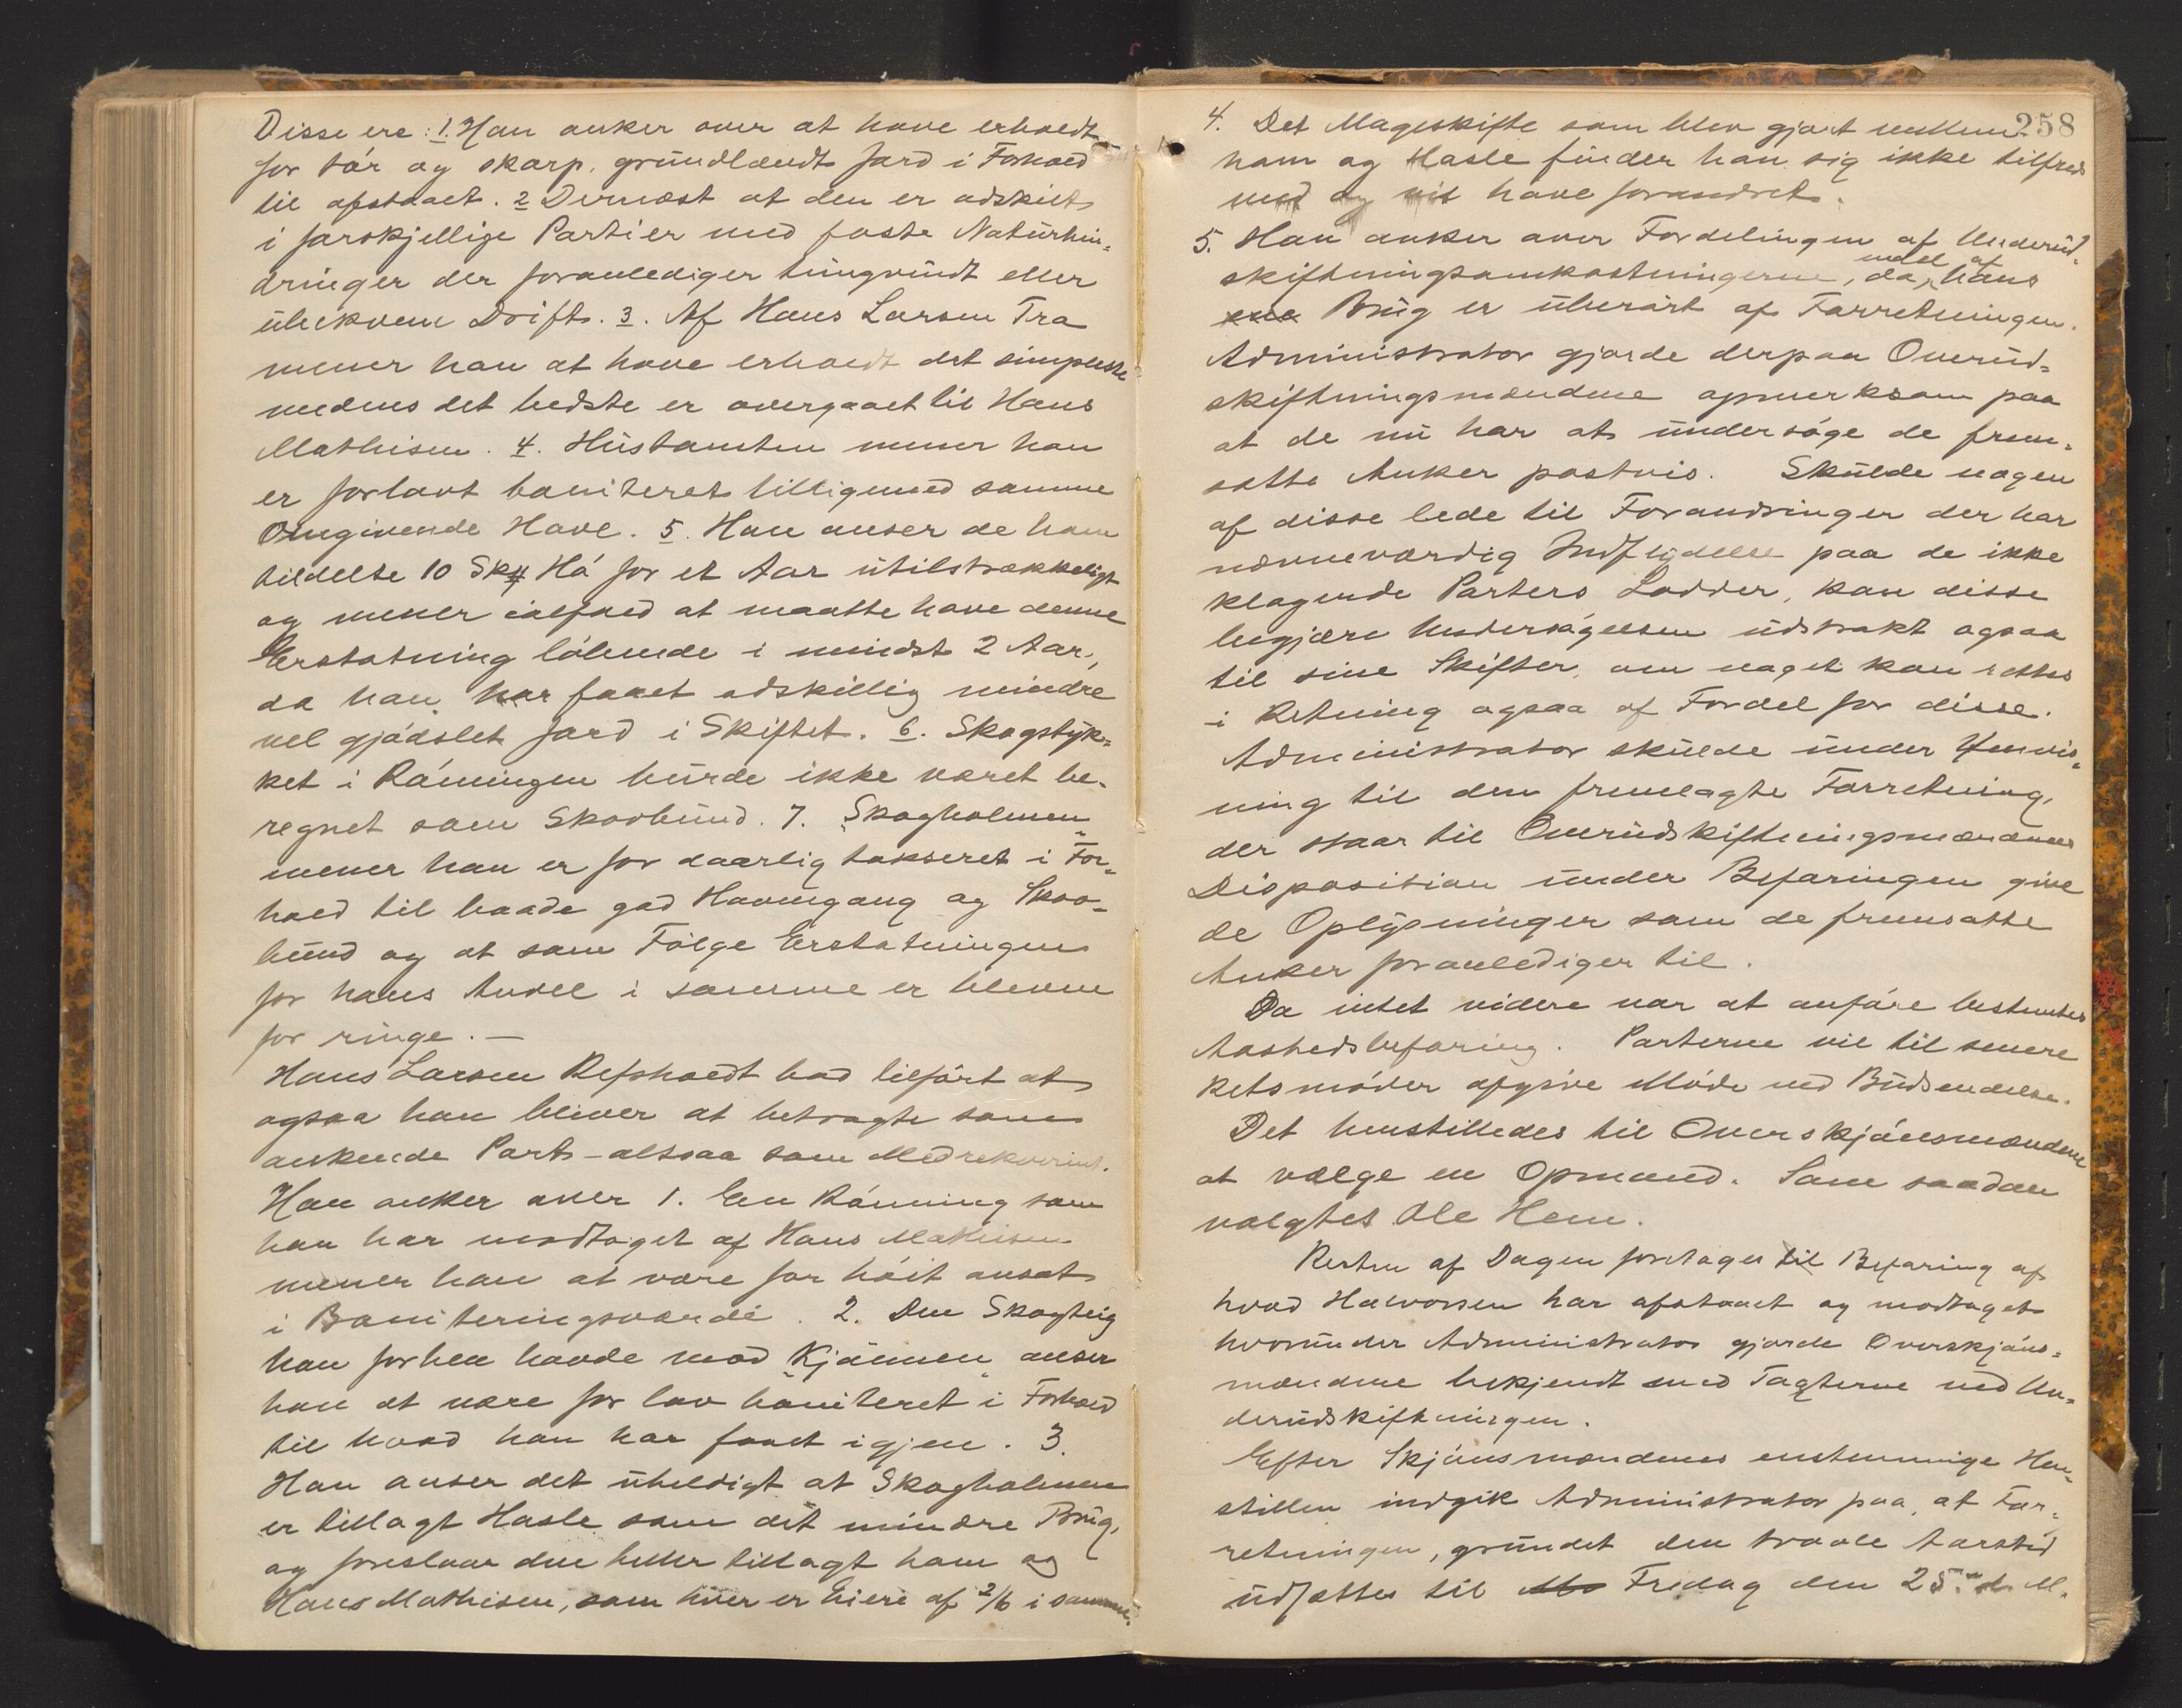 Disse ere: 1. Han anker over at have erholdt
for tör og skarp, grundlændt Jord i Forhold
til afstaaet. 2 Dernæst at den er adskilt
i forskjellige Partier med faste Naturhin-
dringer der foranlediger tungvundt eller
ubekvem Drift. 3. Af Hans Larsen Tra
mener han at have erholdt det simpleste
medens det bedste er overgaaet til Hans
Mathisen. 4. Hustomten mener han
er forlavt boniteret tilligemed samme
Omgivende Have. 5. Han anser de ham
tildelte 10 Sk℔ Hö for et Aar utilstrækkeligt
og mener ialfald at maatte have denne
Erstatning löbende i mindst 2 Aar,
da han har faaet adskillig mindre
vel gjödslet Jord i Skiftet. 6. Skogstyk-
ket i Röningen burde ikke været be-
regnet som Skovbund. 7. "Skogholmen"
mener han er for daarlig takseret i For-
hold til baade god Havnegang og Skov-
bund og at som Fölge Erstatningen
for hans Andel i samme er bleven
for ringe. —
Hans Larsen Refsholdt bad tilfört at
ogsaa han bliver at betragte som
ankende Part - altsaa som Medrekvirent.
Han anker over 1. En Rönning som
han har modtaget af Hans Mathisen
mener han at være for höit ansat
i Boniteringsværdi. 2. Den Skogteig
han forhen havde mod "Kjönnen" anser
han at være for lav boniteret i Forhold
til hvad han har faaet igjen. 3.
Han anser det uheldigt at Skogholmen
er tillagt Hasle som det mindre Brug,
og foreslaar den heller tillagt ham og
Hans Mathisen, som hver er Eiere af 2/6 i samme.
258
4. Det Mageskifte som blev gjort mellem
ham og Hasle finder han sig ikke tilfreds
med og vil have forandret.
5. Han anker over Fordelingen af Underud-
skiftningsomkostningerne, da en del af hans
Brug er uberört af Forretningen.
Administrator gjorde derpaa Overud-
skiftningsmændene opmerksom paa
at de nu har at undersöge de frem-
satte Anker postvis. Skulde nogen
af disse lede til Forandringer der har
nævneværdig Indflydelse paa de ikke
klagende Parters Lodder, kan disse
begjære Undersögelsen udstrakt ogsaa
til sine Skifter, om noget kan rettes
i Retning ogsaa af Fordel for disse.
Administrator skulde under Henvis-
ning til den fremlagte Forretning,
der staar til Overudskiftningsmændenes
Disposition under Befaringen give
de Oplysninger som de fremsatte
Anker foranlediger til.
Da intet videre var at anföre besluttes
Aastedsbefaring. Parterne vil til senere
Retsmöder afgive Möde ved Budsendelse.
Det henstilledes til Overskjönsmændene
at vælge en Opmand. Som saadan
valgtes Ole Hem.
Resten af Dagen foretages til Befaring af
hvad Halvorsen har afstaaet og modtaget
hvorunder Administrator gjorde Overskjöns-
mændene bekjendt med Tagterne ved Un-
derudskiftningen.
Efter Skjönsmændenes enstemmige Hen-
stillen indgik Administrator paa, at For-
retningen, grundet den travle Aarstid
udsættes til Fredag den 25de d. M.